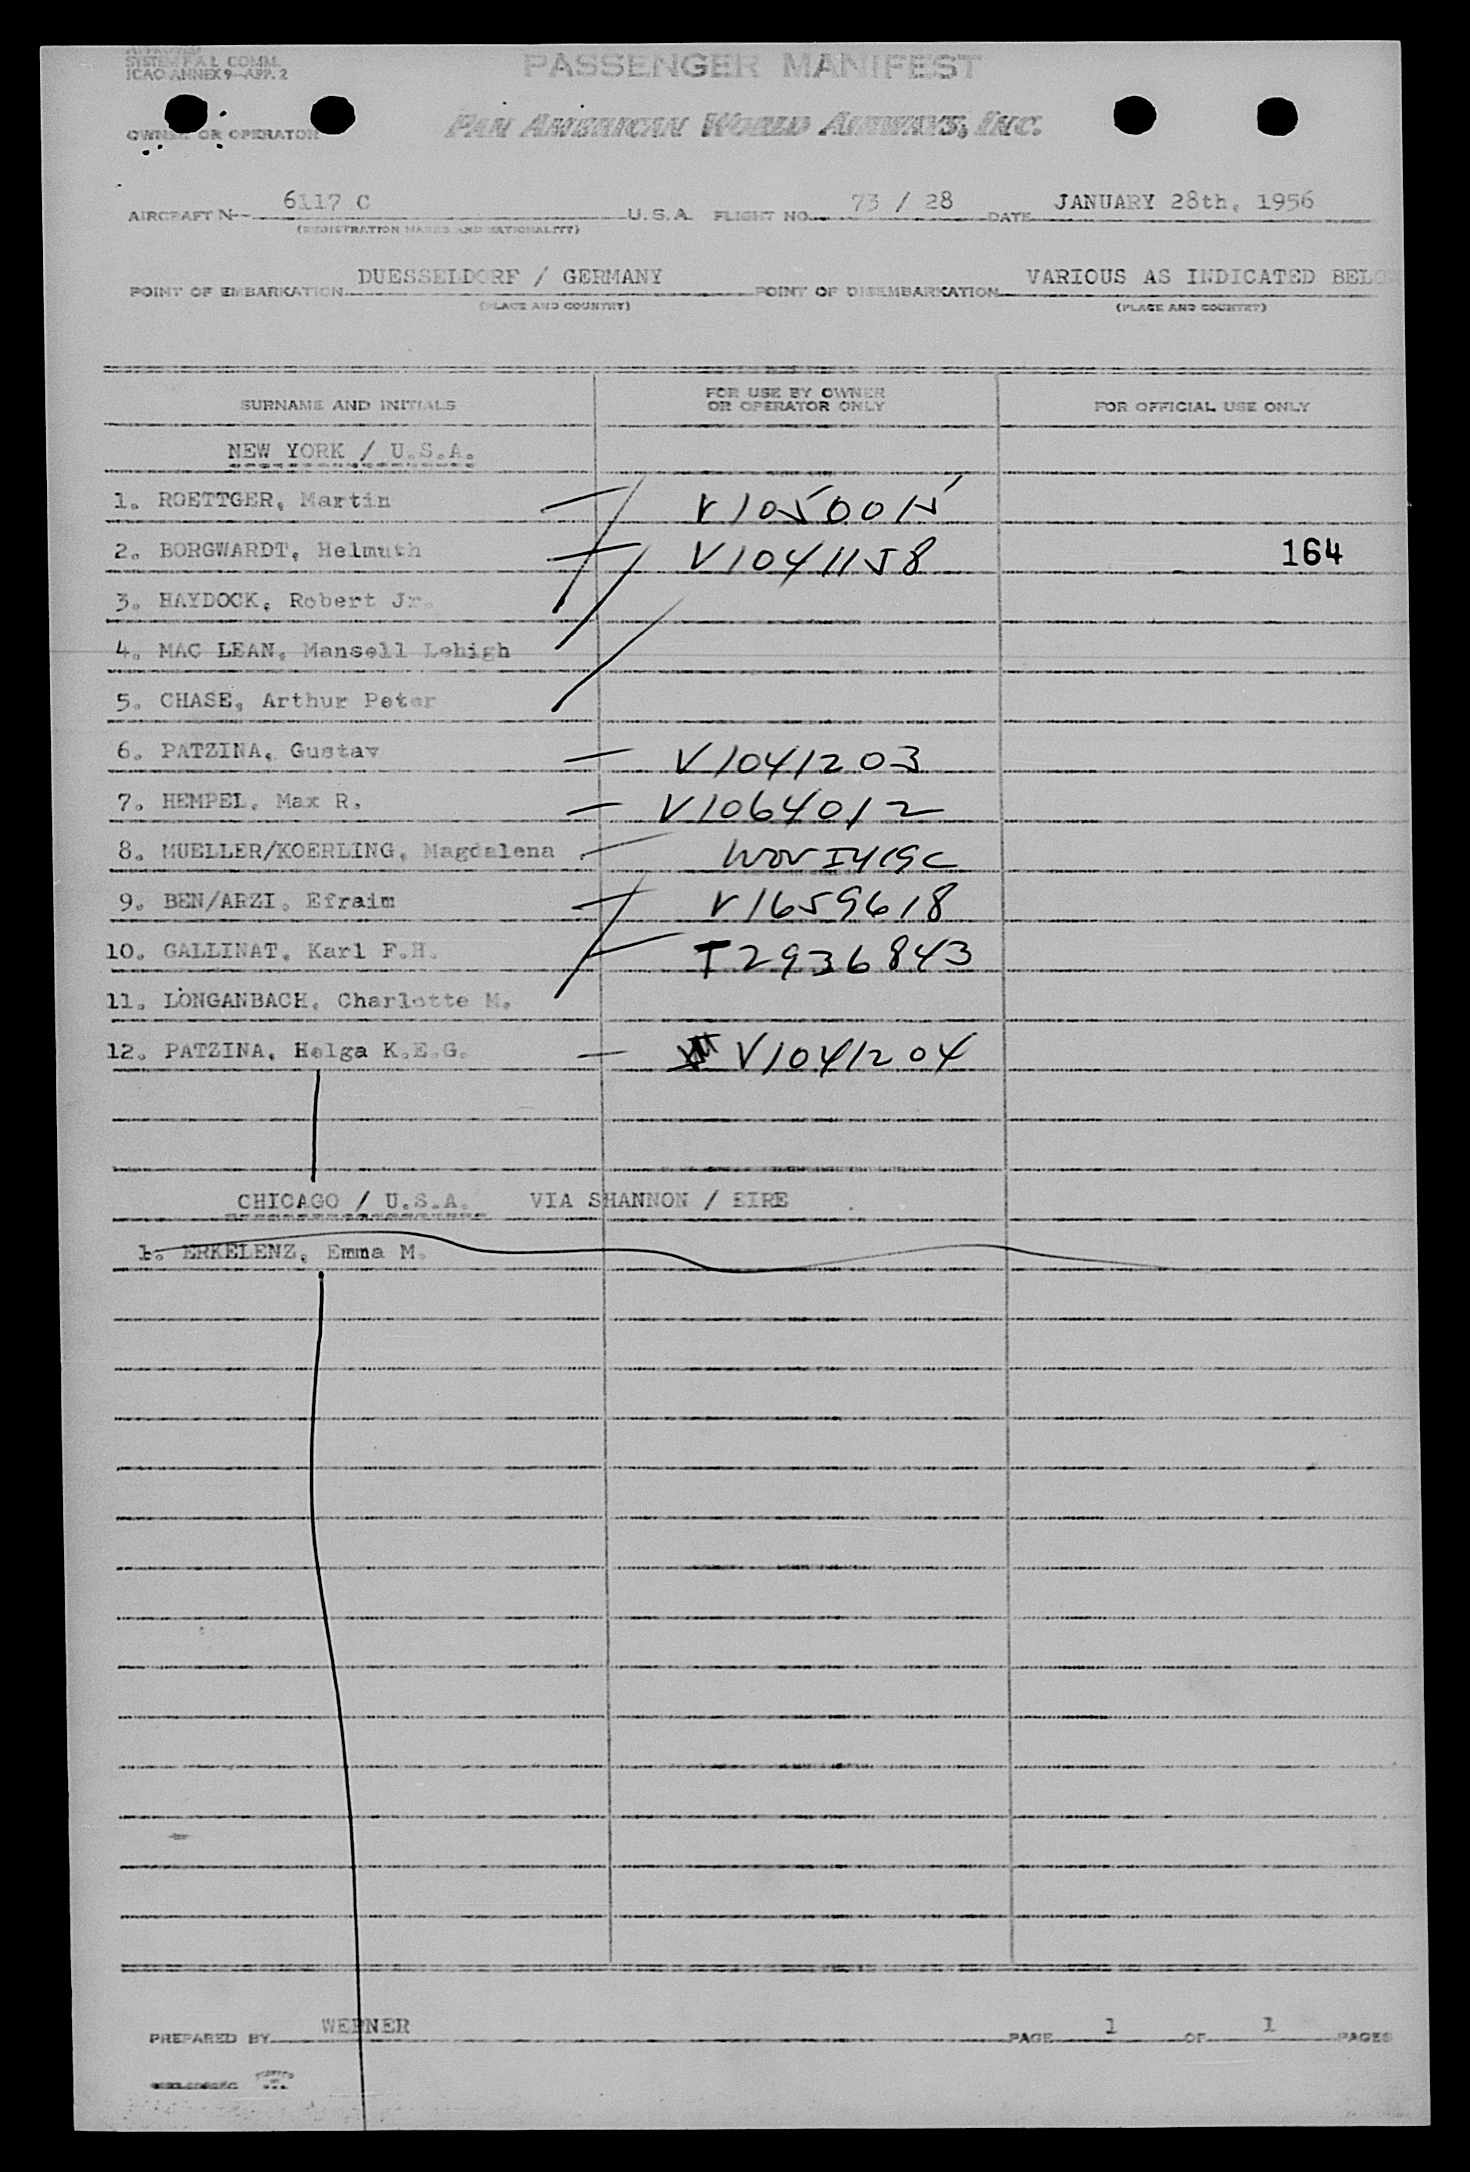 APPROVED
SYSTEM F.A.L. COMM.
ICAO ANNEX 9—APP. 2
PASSENGER MANIFEST
OWNER OR OPERATOR PAN AMERICAN WORLD AIRWAYS, INC.
AIRCRAFT N— 6117 C U.S.A. FLIGHT NO. 73 / 28 DATE JANUARY 28th, 1956
(REGISTRATION MARKS AND NATIONALITY)
POINT OF EMBARKATION DUESSELDORF / GERMANY POINT OF DISEMBARKATION VARIOUS AS INDICATED BELOW
(PLACE AND COUNTRY) (PLACE AND COUNTRY)
SURNAME AND INITIALS FOR USE BY OWNER OR OPERATOR ONLY FOR OFFICIAL USE ONLY
NEW YORK / U.S.A.
1. ROETTGER, Martin — V1050015
2. BORGWARDT, Helmuth — V1041158 164
3. HAYDOCK, Robert Jr. /
4. MAC LEAN, Mansell Lehigh /
5. CHASE, Arthur Peter /
6. PATZINA, Gustav — V1041203
7. HEMPEL, Max R. — V1064012
8. MUELLER/KOERLING, Magdalena —
9. BEN/ARZI, Efraim — V1659618
10. GALLINAT, Karl F.H. — T2936843
11. LONGANBACH, Charlotte M. /
12. PATZINA, Helga K.E.G. — V1041204
CHICAGO / U.S.A. VIA SHANNON / EIRE
1. ERKELENZ, Emma M.
PREPARED BY WERNER PAGE 1 OF 1 PAGES